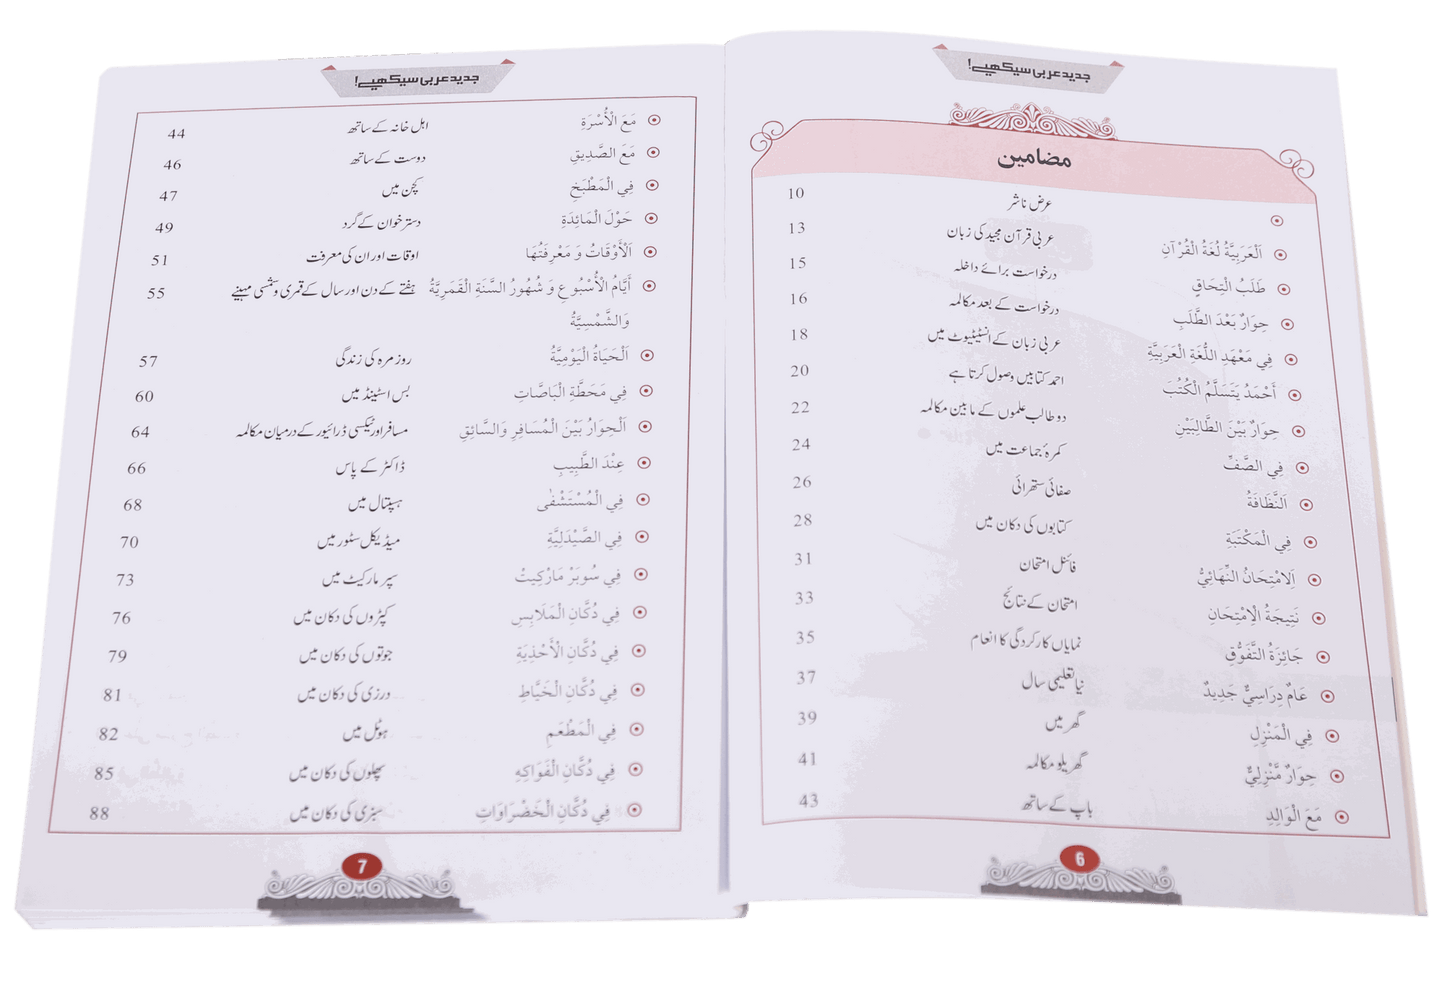 جدید عربی سیکھیے!
مضامین
عرض ناشر 10
اَلْعَرَبِيَّةُ لُغَةُ الْقُرْآنِ عربی قرآن مجید کی زبان 13
طَلَبُ الْتِحَاقٍ درخواست برائے داخلہ 15
حِوَارٌ بَعْدَ الطَّلَبِ درخواست کے بعد مکالمہ 16
فِي مَعْهَدِ اللُّغَةِ الْعَرَبِيَّةِ عربی زبان کے انسٹیٹیوٹ میں 18
أَحْمَدُ يَتَسَلَّمُ الْكُتُبَ احمد کتابیں وصول کرتا ہے 20
حِوَارٌ بَيْنَ الطَّالِبَيْنِ دو طالب علموں کے مابین مکالمہ 22
فِي الصَّفِّ کمرۂ جماعت میں 24
اَلنَّظَافَةُ صفائی ستھرائی 26
فِي الْمَكْتَبَةِ کتابوں کی دکان میں 28
اَلِامْتِحَانُ النِّهَائِيُّ فائنل امتحان 31
نَتِيجَةُ الْاِمْتِحَانِ امتحان کے نتائج 33
جَائِزَةُ التَّفَوُّقِ نمایاں کارکردگی کا انعام 35
عَامٌ دِرَاسِيٌّ جَدِيدٌ نیا تعلیمی سال 37
فِي الْمَنْزِلِ گھر میں 39
حِوَارٌ مَّنْزِلِيٌّ گھریلو مکالمہ 41
مَعَ الْوَالِدِ باپ کے ساتھ 43
6
جدید عربی سیکھیے!
مَعَ الْأُسْرَةِ اہل خانہ کے ساتھ 44
مَعَ الصَّدِيقِ دوست کے ساتھ 46
فِي الْمَطْبَخِ کچن میں 47
حَوْلَ الْمَائِدَةِ دسترخوان کے گرد 49
اَلْأَوْقَاتُ وَ مَعْرِفَتُهَا اوقات اور ان کی معرفت 51
أَيَّامُ الْأُسْبُوعِ وَ شُهُورُ السَّنَةِ الْقَمَرِيَّةُ ہفتے کے دن اور سال کے قمری و شمسی مہینے 55
وَالشَّمْسِيَّةُ
اَلْحَيَاةُ الْيَوْمِيَّةُ روز مرہ کی زندگی 57
فِي مَحَطَّةِ الْبَاصَّاتِ بس اسٹینڈ میں 60
اَلْحِوَارُ بَيْنَ الْمُسَافِرِ وَالسَّائِقِ مسافر اور ٹیکسی ڈرائیور کے درمیان مکالمہ 64
عِنْدَ الطَّبِيبِ ڈاکٹر کے پاس 66
فِي الْمُسْتَشْفٰى ہسپتال میں 68
فِي الصَّيْدَلِيَّةِ میڈیکل سٹور میں 70
فِي سُوبَرْ مَارْكِيتْ سپر مارکیٹ میں 73
فِي دُكَّانِ الْمَلَابِسِ کپڑوں کی دکان میں 76
فِي دُكَّانِ الْأَحْذِيَةِ جوتوں کی دکان میں 79
فِي دُكَّانِ الْخَيَّاطِ درزی کی دکان میں 81
فِي الْمَطْعَمِ ہوٹل میں 82
فِي دُكَّانِ الْفَوَاكِهِ پھلوں کی دکان میں 85
فِي دُكَّانِ الْخَضْرَاوَاتِ سبزی کی دکان میں 88
7